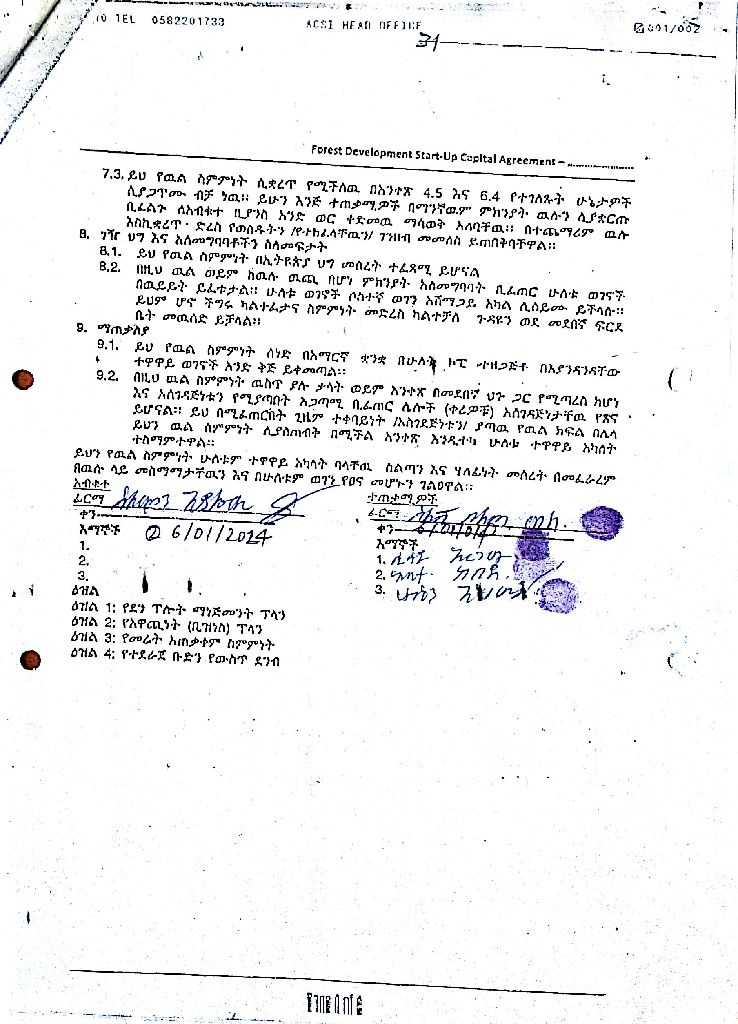 TEL 0582201733 ACSI HEAD OFFICE 001/002
31
Forest Development Start-Up Capital Agreement –
7.3. ይህ የዉል ስምምነት ሊቋረጥ የሚችለዉ በአንቀጽ 4.5 እና 6.4 የተገለጹት ሁኔታዎች
ሲያጋጥሙ ብቻ ነዉ። ይሁን እንጅ ተጠቃሚዎች በማንኛዉም ምክንያት ዉሉን ሲያቋርጡ
ቢፈልጉ ለአብቁተ ቢያንስ አንድ ወር ቀድመዉ ማሳወቅ አለባቸዉ። በተጨማሪም ዉሉ
እስኪቋረጥ ድረስ የወሰዱትን /የተከፈላቸዉን/ ገንዘብ መመለስ ይጠበቅባቸዋል።
8. ገዥ ህግ እና አለመግባባቶችን ስለመፍታት
8.1. ይህ የዉል ስምምነት በኢትዮጵያ ህግ መሰረት ተፈጻሚ ይሆናል
8.2. በዚህ ዉል ወይም ከዉሉ ዉጪ በሆነ ምክንያት አለመግባባት ቢፈጠር ሁለቱ ወገኖች
በዉይይት ይፈቱታል። ሁለቱ ወገኖች ሶስተኛ ወገን አሸማጋይ አካል ሊሰይሙ ይችላሉ።
ይህም ሆኖ ችግሩ ካልተፈታና ስምምነት መድረስ ካልተቻለ ጉዳዩን ወደ መደበኛ ፍርድ
ቤት መዉሰድ ይቻላል።
9. ማጠቃለያ
9.1. ይህ የዉል ስምምነት ሰነድ በአማርኛ ቋንቋ በሁለት ኮፒ ተዘጋጅቶ በእያንዳንዳቸው
ተዋዋይ ወገኖች አንድ ቅጅ ይቀመጣል።
9.2. በዚህ ዉል ስምምነት ዉስጥ ያሉ ቃላት ወይም አንቀጽ በመደበኛ ህጉ ጋር የሚጣረስ ከሆነ
እና አስገዳጅነቱን የሚያጣበት አጋጣሚ ቢፈጠር ሌሎች (ቀሪዎቹ) አስገዳጅነታቸዉ የጸና
ይሆናል። ይህ በሚፈጠርበት ጊዜም ተቀባይነት /አስገደጅነቱን/ ያጣዉ የዉል ክፍል በሌላ
ይህን ዉል ስምምነት ሊያስጠብት በሚችል አንቀጽ እንዲተካ ሁለቱ ተዋዋይ አካላት
ተስማምተዋል።
ይህን የዉል ስምምነት ሁለቱም ተዋዋይ አካላት ባላቸዉ ስልጣን እና ሃላፊነት መሰረት በመፈራረም
በዉሉ ላይ መስማማታቸዉን እና በሁለቱም ወገን የፀና መሆኑን ገልፀዋል።
አብቁተ
ፊርማ
ቀን
እማኞች 6/01/2014
1.
2.
3.
ተጠቃሚዎች
ፊርማ
ቀን
እማኞች
1.
2. ከበደ
3.
ዕዝል
ዕዝል 1: የደን ፕሎት ማኔጅመንት ፕላን
ዕዝል 2: የአዋጪነት (ቢዝነስ) ፕላን
ዕዝል 3: የመሬት አጠቃቀም ስምምነት
ዕዝል 4: የተደራጀ ቡድን የውስጥ ደንብ